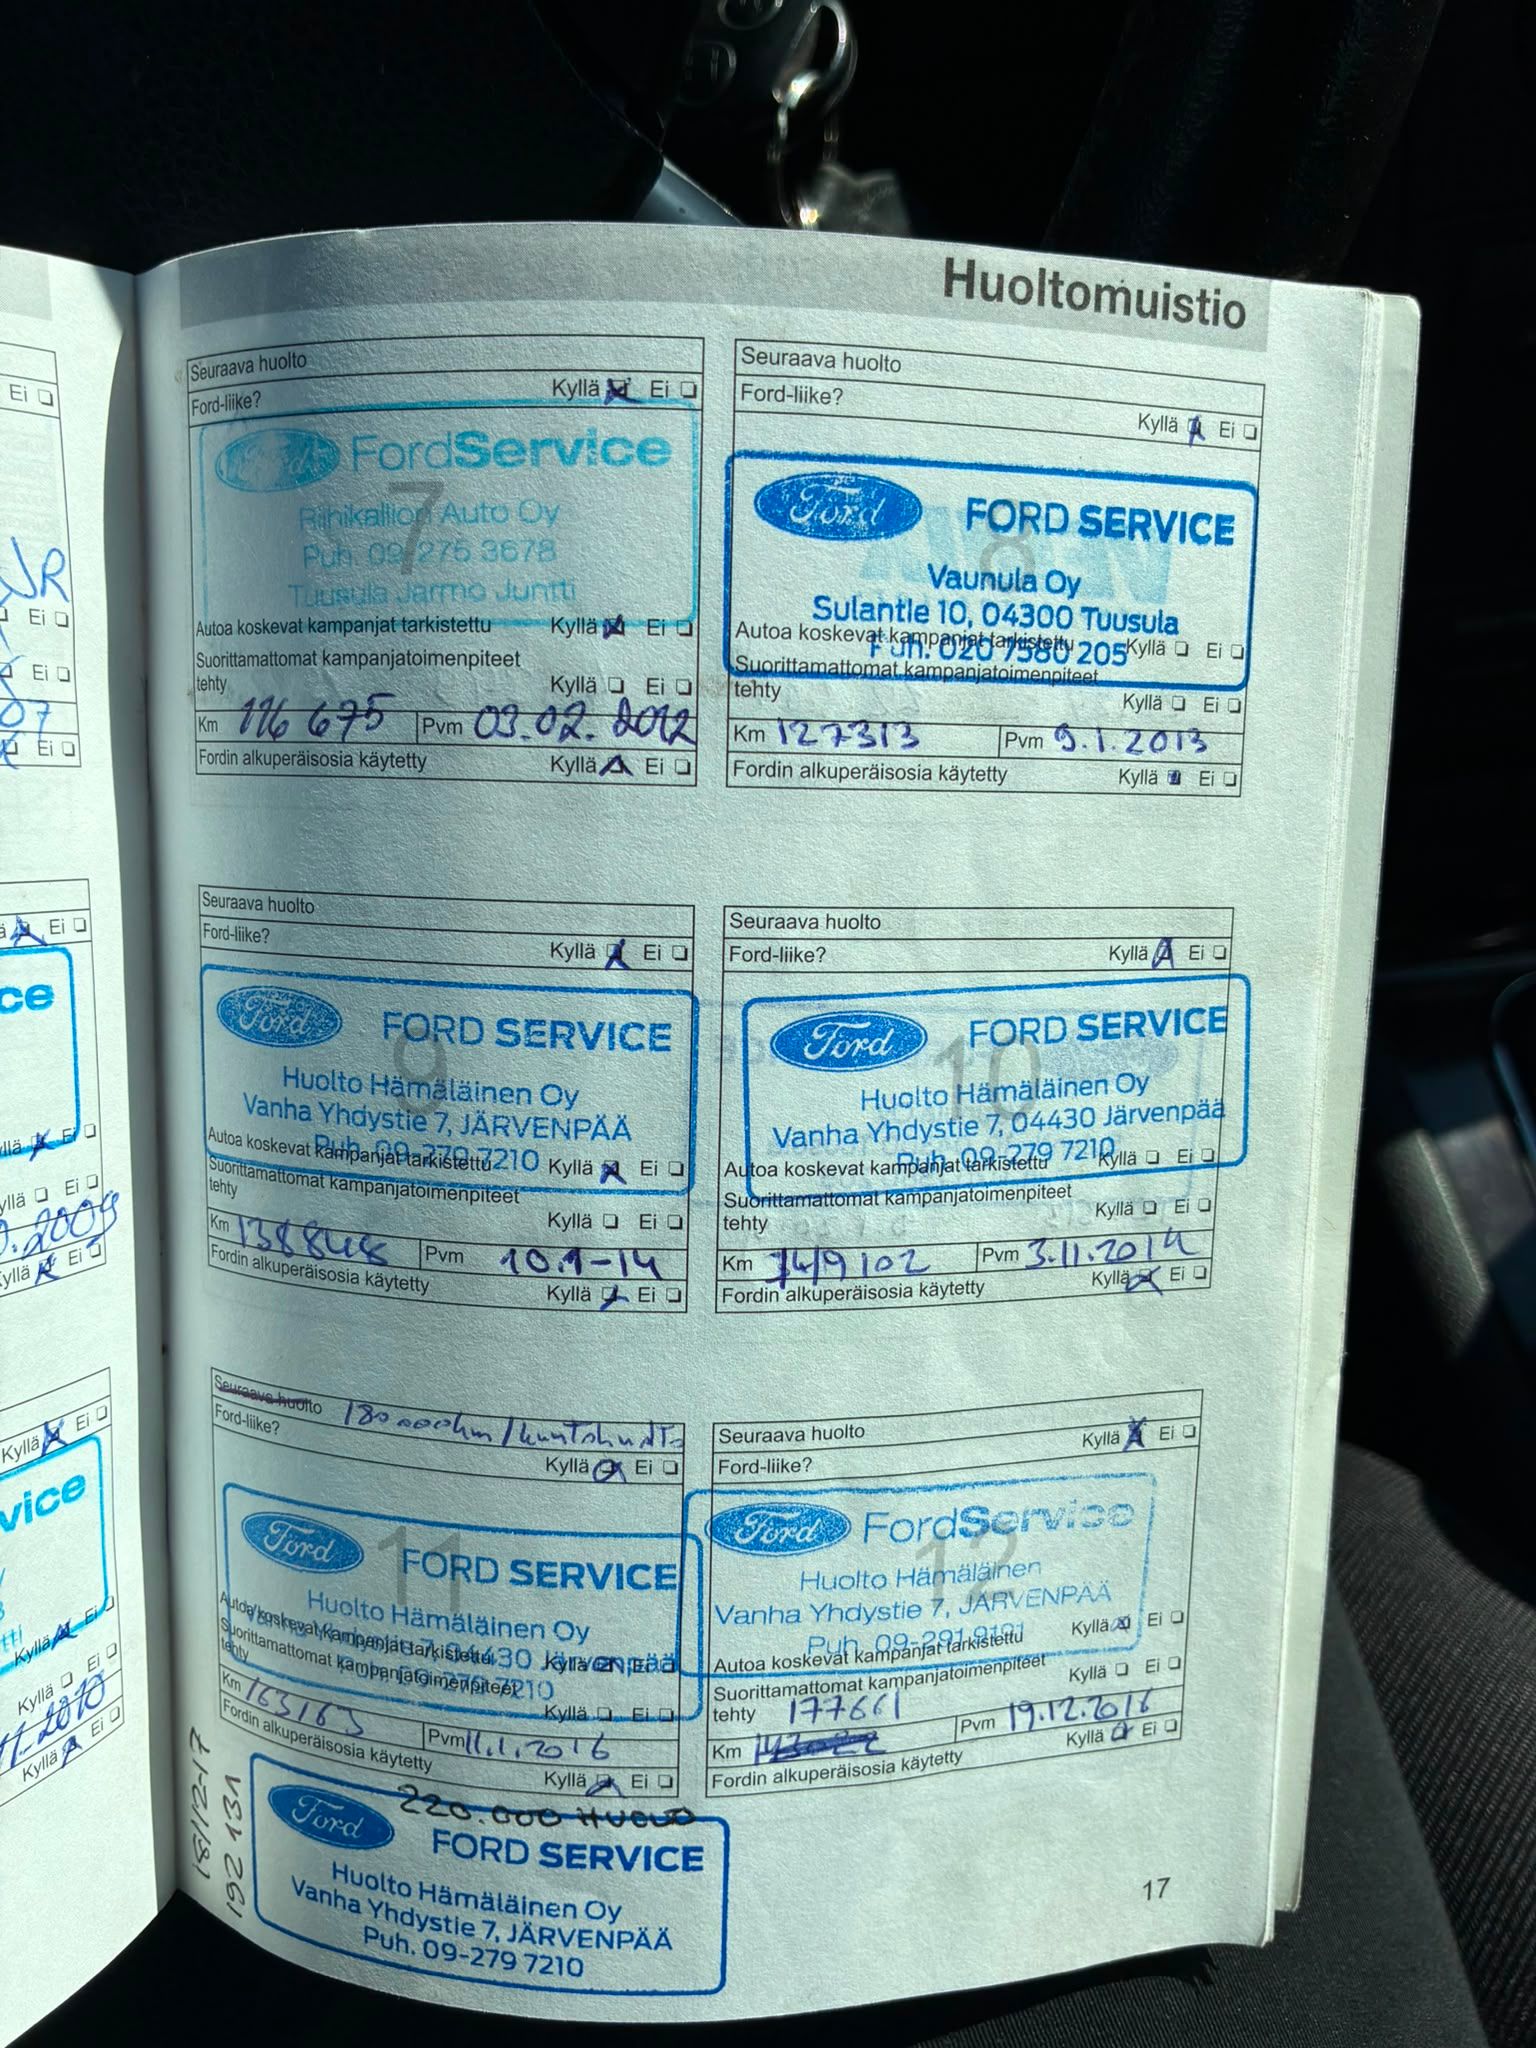 Huoltomuistio
Seuraava huolto
Ford-liike?
Kyllä Ei
Ford FordService
7
Riihikallion Auto Oy
Puh. 09 275 3678
Tuusula Jarmo Juntti
Autoa koskevat kampanjat tarkistettu Kyllä Ei
Suorittamattomat kampanjatoimenpiteet
tehty Kyllä Ei
Km 116 675 Pvm 03.02.2012
Fordin alkuperäisosia käytetty Kyllä Ei
Seuraava huolto
Ford-liike?
Kyllä Ei
Ford FORD SERVICE
8
Vaunula Oy
Sulantie 10, 04300 Tuusula
Puh. 020 7580 205
Autoa koskevat kampanjat tarkistettu Kyllä Ei
Suorittamattomat kampanjatoimenpiteet
tehty Kyllä Ei
Km 127313 Pvm 9.1.2013
Fordin alkuperäisosia käytetty Kyllä Ei
Seuraava huolto
Ford-liike?
Kyllä Ei
Ford FORD SERVICE
9
Huolto Hämäläinen Oy
Vanha Yhdystie 7, JÄRVENPÄÄ
Puh. 09-279 7210
Autoa koskevat kampanjat tarkistettu Kyllä Ei
Suorittamattomat kampanjatoimenpiteet
tehty Kyllä Ei
Km 138848 Pvm 10.1-14
Fordin alkuperäisosia käytetty Kyllä Ei
Seuraava huolto
Ford-liike?
Kyllä Ei
Ford FORD SERVICE
10
Huolto Hämäläinen Oy
Vanha Yhdystie 7, 04430 Järvenpää
Puh. 09-279 7210
Autoa koskevat kampanjat tarkistettu Kyllä Ei
Suorittamattomat kampanjatoimenpiteet
tehty Kyllä Ei
Km 149102 Pvm 3.11.2014
Fordin alkuperäisosia käytetty Kyllä Ei
Seuraava huolto 180 000km/
Ford-liike?
Kyllä Ei
Ford FORD SERVICE
11
Huolto Hämäläinen Oy
Vanha Yhdystie 7, 04430 Järvenpää
Puh. 09-279 7210
Autoa koskevat kampanjat tarkistettu Kyllä Ei
Suorittamattomat kampanjatoimenpiteet
tehty Kyllä Ei
Km 163163 Pvm 11.1.2016
Fordin alkuperäisosia käytetty Kyllä Ei
Seuraava huolto Kyllä Ei
Ford-liike?
Ford FordService
12
Huolto Hämäläinen
Vanha Yhdystie 7, JÄRVENPÄÄ
Puh. 09-291 9191
Autoa koskevat kampanjat tarkistettu Kyllä Ei
Suorittamattomat kampanjatoimenpiteet Kyllä Ei
tehty 177661
Km Pvm 19.12.2016
Fordin alkuperäisosia käytetty Kyllä Ei
18/12-17
192 131
220.000 HUOLTO
Ford FORD SERVICE
Huolto Hämäläinen Oy
Vanha Yhdystie 7, JÄRVENPÄÄ
Puh. 09-279 7210
17